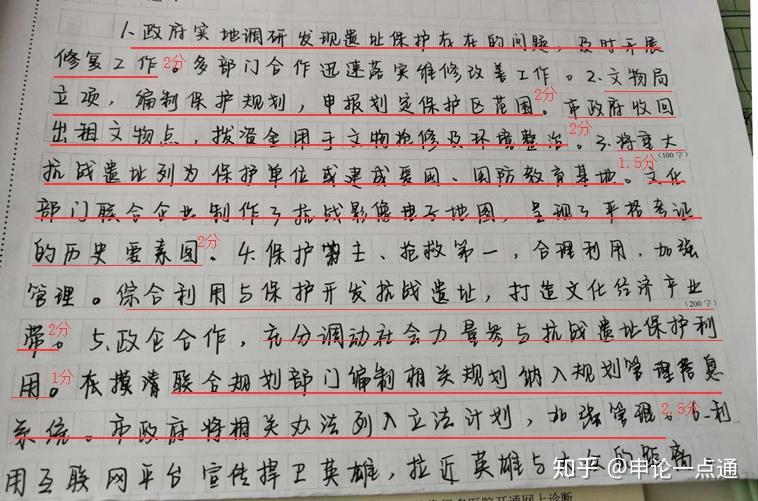 1.政府实地调研发现遗址保护存在的问题,及时开展
修复工作。多部门合作迅速落实维修改善工作。2.文物局
2分
立项,编制保护规划,申报划定保护区范围。市政府收回
2分
出租文物点,拨资金用于文物抢修及环境整治。3.将重大
2分
(100字)
抗战遗址列为保护单位或建成爱国、国防教育基地。文化
1.5分
部门联合企业制作了抗战影像电子地图,呈现了严格考证
的历史要素图。4.保护为主、抢救第一,合理利用,加强
2分
管理。综合利用与保护开发抗战遗址,打造文化经济产业
(200字)
带。5.政企合作,充分调动社会力量参与抗战遗址保护利
2分
用。在摸清联合规划部门编制相关规划纳入规划管理信息
1分
系统。市政府将相关办法列入立法计划,加强管理。6.利
2.5分
用互联网平台宣传捍卫英雄,拉近英雄与大众的距离
知乎 @申论一点通
医院开通网上诊断